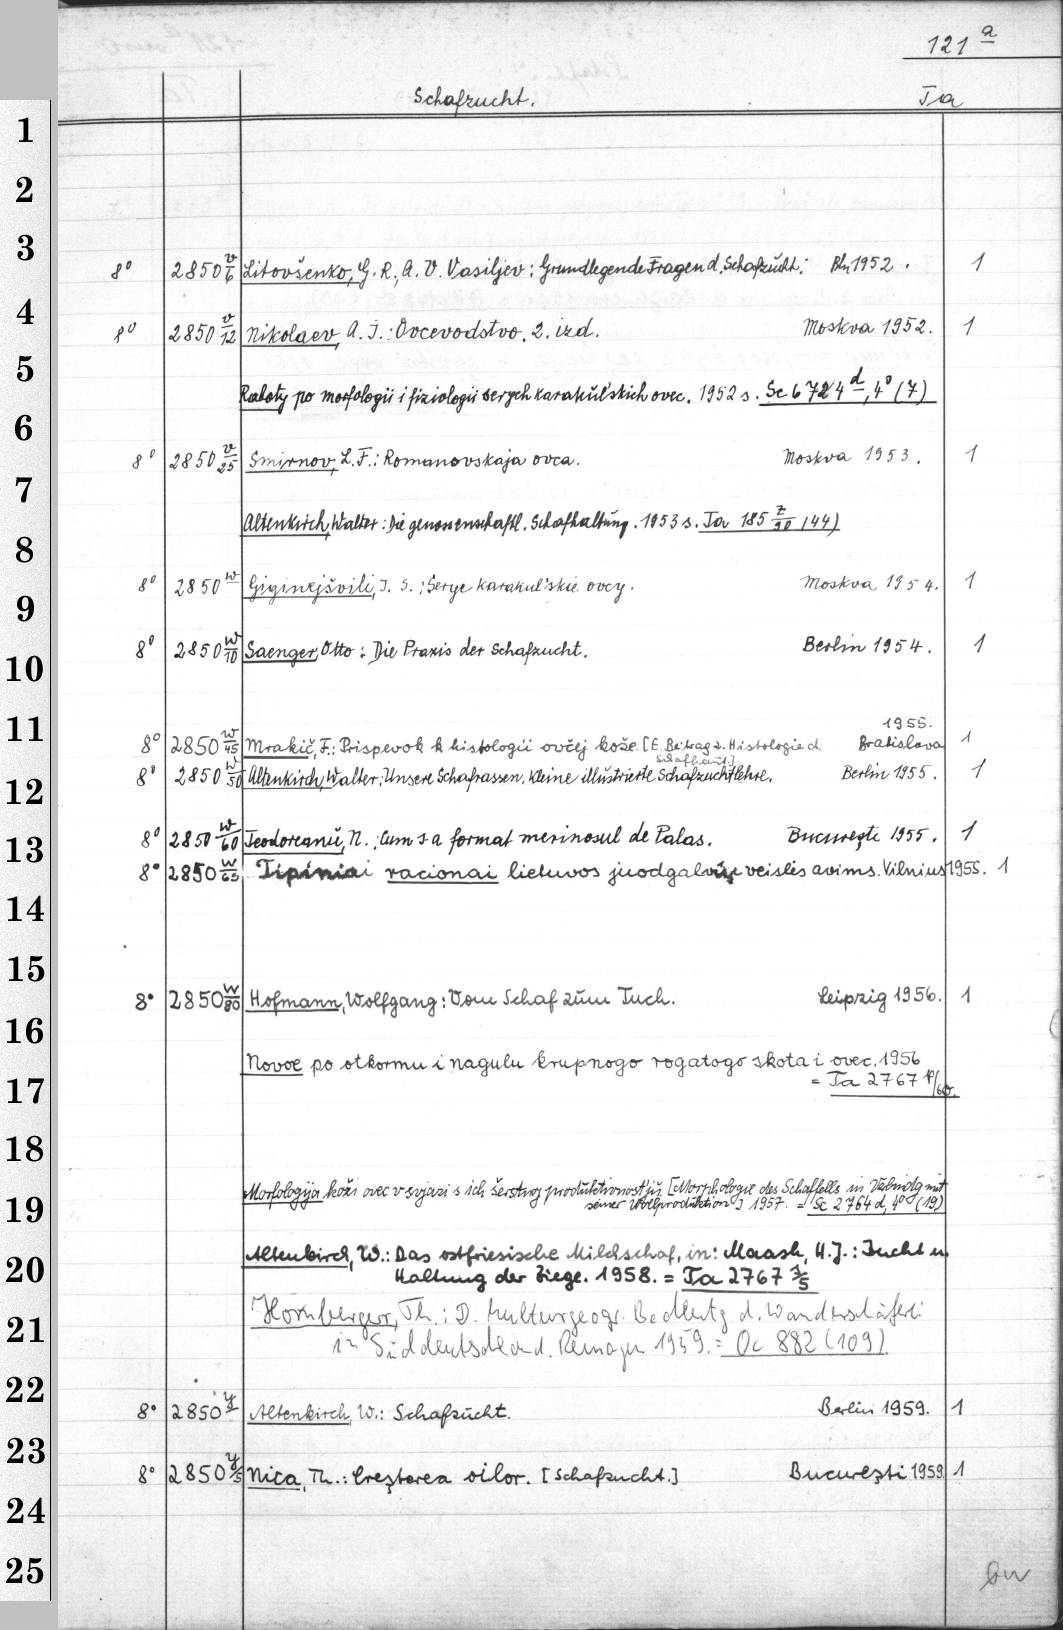 121 a
Schafzucht.
Ta
1
2
3
8° 2850 v/6 Litovšenko, G. R., A. V. Vasiljev: Grundlegende Fragen d. Schafzucht. Bln 1952. 1
4
8° 2850 v/12 Nikolaev, A. I.: Ovcevodstvo. 2. izd. Moskva 1952. 1
5
Raboty po morfologii i fiziologii serych karakul'skich ovec. 1952 s. Sc 6724 d, 4° (7)
6
8° 2850 v/25 Smirnov, L. F.: Romanovskaja ovca. Moskva 1953. 1
7
Altenkirch, Walter: Die genossenschaftl. Schafhaltung. 1953 s. Ta 185 z/90 (44)
8
8° 2850 w Giginejšvili, I. S.: Serye karakul'skie ovcy. Moskva 1954. 1
9
8° 2850 w/10 Saenger, Otto: Die Praxis der Schafzucht. Berlin 1954. 1
10
11
1955.
8° 2850 w/45 Mrakič, F.: Prispevok k histologii ovčej kože. [E. Beitrag z. Histologie d. Bratislava 1
Schafhaut.]
8° 2850 w/50 Altenkirch, Walter: Unsere Schafrassen. Kleine illustrierte Schafzuchtlehre. Berlin 1955. 1
12
8° 2850 w/60 Teodoreanu, N.: Cum s-a format merinosul de Palas. București 1955. 1
13
8° 2850 w/65 Tipiniai racionai lietuvos juodgalvių veislės avims. Vilnius 1955. 1
14
15
8° 2850 w/80 Hofmann, Wolfgang: Vom Schaf zum Tuch. Leipzig 1956. 1
16
Novoe po otkormu i nagulu krupnogo rogatogo skota i ovec. 1956
= Ta 2767 p/60.
17
18
Morfologija koži ovec v svjazi s ich šerstnoj produktivnost'ju [Morphologie des Schaffells in Verbindg mit
seiner Wollproduktion] 1957. = Sc 2764 d, 4° (19)
19
Altenkirch, W.: Das ostfriesische Milchschaf, in: Maash, H. J.: Zucht u.
Haltung der Ziege. 1958. = Ta 2767 s/5
20
Hornberger, Th.: D. kulturgeogr. Bedeutg d. Wanderschäferei
in Süddeutschland. Remagen 1959. = Oc 882 (109)
21
22
8° 2850 y Altenkirch, W.: Schafzucht. Berlin 1959. 1
23
8° 2850 y/5 Nica, Th.: Creșterea oilor. [Schafzucht.] București 1959 1
24
25